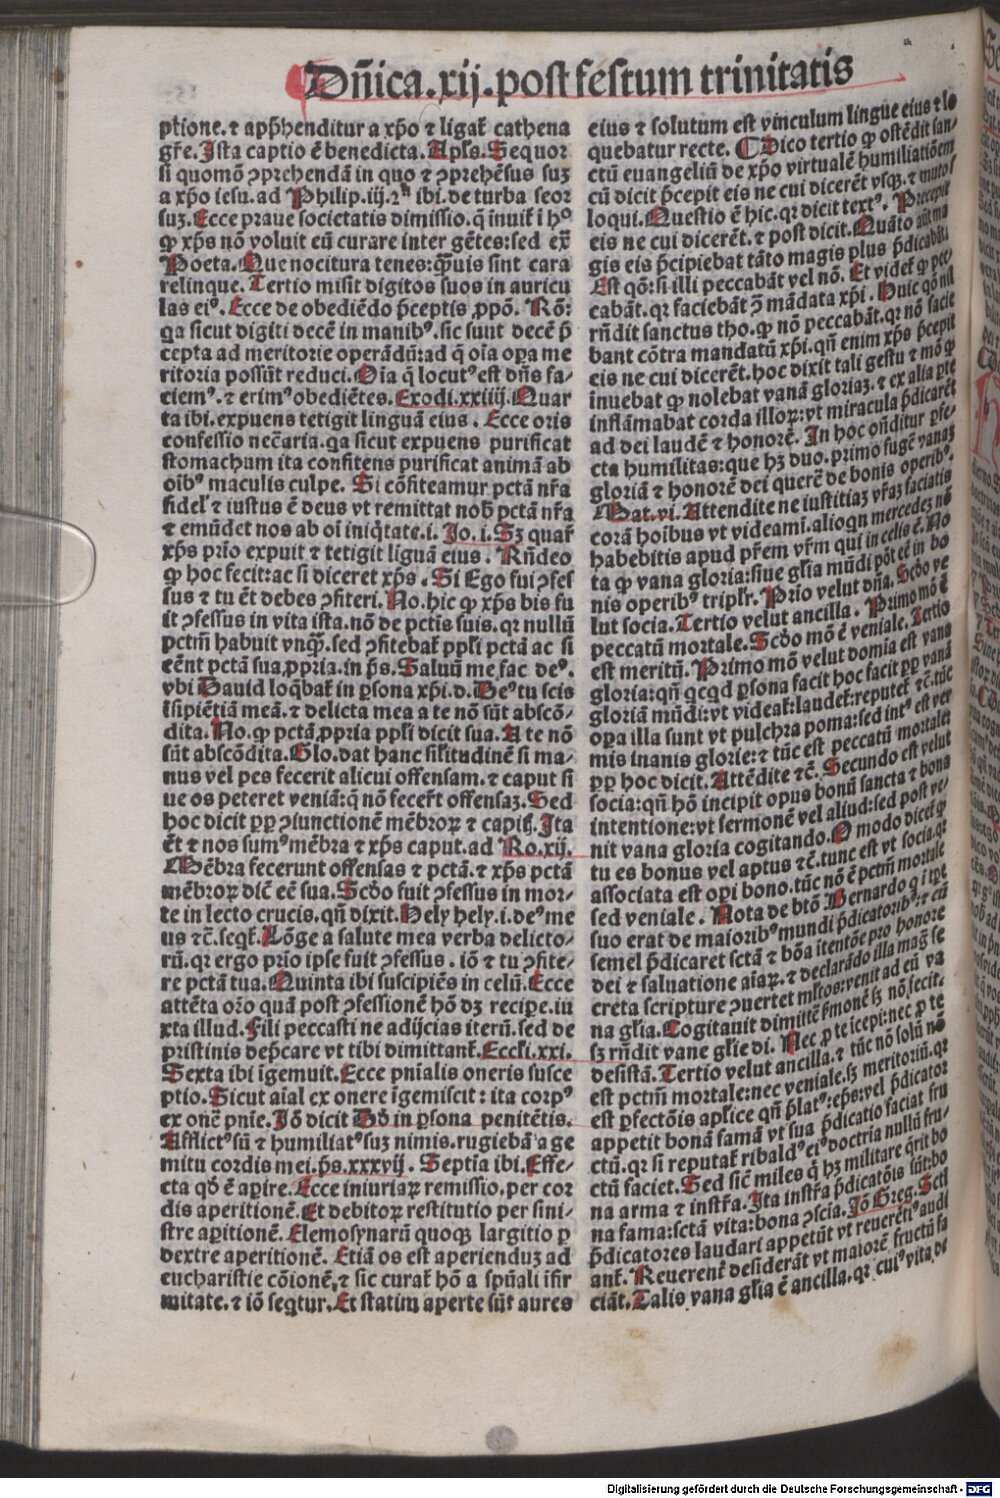 Dñica.xij.post festum trinitatis
ptione.⁊ app̄henditur a xp̄o ⁊ ligat̄ cathena
gr̄e.Ista captio ē benedicta.Apl̄s.Sequor
si quomō ꝯprehendā in quo ⁊ ꝯprehēsus suꝫ
a xp̄o iesu.ad Philip.iij. ibi.de turba seor
suꝫ.Ecce praue societatis dimissio.q̄ inuit̄ ī hᵒ
ꝙ xp̄s nō voluit eū curare inter gētes:sed ex̄
Poeta.Que nocitura tenes:q̄uis sint cara
relinque.Tertio misit digitos suos in auricu
las eiꝰ.Ecce de obediēdo p̄ceptis ꝓpō. Rō:
qa sicut digiti decē in manibꝰ.sic sunt decē p̄
cepta ad meritorie operādū:ad q̄ oīa oꝑa me
ritoria possūt reduci.Oīa q̄ locutꝰ est dn̄s fa⸗
ciemꝰ.⁊ erimꝰ obediētes.Exodi.xxiiij.Quar
ta ibi.expuens tetigit linguā eius. Ecce oris
confessio nec̄aria.qa sicut expuens purificat
stomachum ita confitens purificat animā ab
oībꝰ maculis culpe. Si cōfiteamur pctā nr̄a
fidel̄ ⁊ iustus ē deus vt remittat nob̄ pctā nr̄a
⁊ emūdet nos ab oī iniq̄tate.i. Jo.i.Sꝫ quar̄
xp̄s prīo expuit ⁊ tetigit liguā eius. Rn̄deo
ꝙ hoc fecit:ac si diceret xp̄s. Si Ego fui ꝯfes
sus ⁊ tu ēt debes ꝯfiteri.No.hic ꝙ xp̄s bis fu
it ꝯfessus in vita ista.nō de pctīs suis.qr nullū
pctm̄ habuit vnq̄.sed ꝯfitebat̄ ppl̄i pctā ac si
eēnt pctā sua ꝓpria.in p̄s.Saluū me fac deꝰ.
vbi Dauid loq̄bat̄ in ꝑsona xp̄i.d.Deꝰ tu scis
īsipiētiā meā.⁊ delicta mea a te nō sūt abscō⸗
dita.No.ꝙ pctā ꝓpria ppl̄i dicit sua.A te nō
sūt abscōdita.Glo.dat hanc sil̄itudinē si ma⸗
nus vel pes fecerit alicui offensam.⁊ caput si
ue os peteret veniā:q̄ nō fecer̄t offensaꝫ.Sed
hoc dicit ꝓp ꝯiunctionē mēbroꝝ ⁊ capit̄.Ita
ēt ⁊ nos sumꝰ mēbra ⁊ xp̄s caput.ad Ro.xij.
Mēbra fecerunt offensas ⁊ pctā.⁊ xp̄s pctā
mēbroꝝ dic̄ eē sua.Scd̄o fuit ꝯfessus in mor⸗
te in lecto crucis.qn̄ dixit.Hely hely.i.deꝰ me
us ⁊c̄.seqt̄.Lōge a salute mea verba delicto⸗
rū.qr ergo prīo ipse fuit ꝯfessus. iō ⁊ tu ꝯfite⸗
re pctā tua.Quinta ibi suscipiēs in celū.Ecce
attēta or̄o quā post ꝯfessionē hō dꝫ recipe.iu
xta illud.Fili peccasti ne adijcias iterū.sed de
pristinis dep̄care vt tibi dimittant̄.Eccl̄i.xxi.
Sexta ibi īgemuit.Ecce pn̄ialis oneris susce
ptio.Sicut aīal ex onere īgemiscit: ita corpꝰ
ex onē pn̄ie.Jō dicit Dd̄ in ꝑsona penitētis.
Afflictꝰ sū ⁊ humiliatꝰ suꝫ nimis.rugiebā a ge
mitu cordis mei.p̄s.xxxvij. Septia ibi.Effe⸗
cta qd̄ ē aꝑire.Ecce iniuriaꝝ remissio.per cor
dis aperitionē.Et debitoꝝ restitutio per sini⸗
stre aꝑitionē.Elemosynarū quoqꝫ largitio ꝑ
dextre aperitionē. Etiā os est aperienduꝫ ad
eucharistie cōionē.⁊ sic curat̄ hō a spūali īfir
mitate.⁊ iō seqtur.Et statim aperte sūt aures
eius ⁊ solutum est vinculum lingue eius ⁊ lo
quebatur recte. ¶Dico tertio ꝙ ostēdit san⸗
ctū euangeliū de xp̄o virtualē humiliatiōem
cū dicit p̄cepit eis ne cui dicerēt vsqꝫ.⁊ mutos
loqui.Questio ē hic.qr dicit textꝰ. Precepit
eis ne cui dicerēt.⁊ post dicit.Quāto aūt ma
gis eis p̄cipiebat tāto magis plus p̄dicabāt.
Est qō:si illi peccabāt vel nō. Et videt̄ ꝙ pec⸗
cabāt.qr faciebāt ꝯ̄ mādata xp̄i. Huic qō nil
rn̄dit sanctus tho.ꝙ nō peccabāt.qr nō facie
bant cōtra mandatū xp̄i.qn̄ enim xp̄s p̄cepit
eis ne cui dicerēt.hoc dixit tali gestu ⁊ mō ꝙ
īnuebat ꝙ nolebat vanā gloriaꝫ.⁊ ex alia ꝑte
inflāmabat corda illoꝝ:vt miracula p̄dicarēt
ad dei laudē ⁊ honorē. In hoc on̄ditur ꝑfe⸗
cta humilitas:que hꝫ duo.primo fugē vanaꝫ
gloriā ⁊ honorē dei querē de bonis operibꝰ.
Mat.vi.Attendite ne iustitiaꝫ vr̄aꝫ faciatis
corā hoībus vt videamī.alioqn mercedeꝫ nō
habebitis apud pr̄em vr̄m qui in celis ē.No
ta ꝙ vana gloria:siue gl̄ia mūdi pōt eē in bo
nis operibꝰ triplr̄. Prīo velut dn̄a.Scd̄o ve
lut socia.Tertio velut ancilla. Primo mō ē
peccatū mortale.Scd̄o mō ē veniale.Tertio
est meritū. Primo mō velut domia est vana
gloria:qn̄ qcqd ꝑsona facit hoc facit ꝓp vanā
gloriā mūdi:vt videat̄:laudet̄:reputet̄ ⁊c̄.tūc
oꝑa illa sunt vt pulchra poma:sed intꝰ est ver
mis inanis glorie:⁊ tūc est peccatū mortale:
ꝓp hoc dicit.Attēdite ⁊c̄. Secundo est velut
socia:qn̄ hō incipit opus bonū sancta ⁊ bona
intentione:vt sermonē vel aliud:sed post ve⸗
nit vana gloria cogitando.O modo dicet̄ ꝙ
tu es bonus vel aptus ⁊c̄.tunc est vt socia.qr
associata est oꝑi bono.tūc nō ē pctm̄ mortale
sed veniale. Nota de btō Bernardo q i tꝑe
suo erat de maioribꝰ mundi p̄dicatoribꝰ:⁊ cū
semel p̄dicaret sctā ⁊ bōa ītentōe pro honore
dei ⁊ saluatione aīaꝝ.⁊ declarādo illa magn̄ se
creta scripture ꝯuertet ml̄tos:venit ad eū va
na gl̄ia.Cogitauit dimittē s̄monē sꝫ nō fecit.
sꝫ rn̄dit vane gl̄ie di. Nec ꝓ te īcepi:nec ꝓ te
desistā.Tertio velut ancilla.⁊ tūc nō solū nō
est pctm̄ mortale:nec veniale.sꝫ meritoriū.qr
est ꝑfectōis apl̄ice qn̄ p̄latꝰ:ep̄s:vel p̄dicator
appetit bonā famā vt sua p̄dicatio faciat fru
ctū.qr si reputat̄ ribaldꝰ eiꝰ doctria nullū fru⸗
ctū faciet.Sed sic̄ miles q̄ hꝫ militare q̄rit bo
na arma ⁊ instr̄a.Ita instr̄a p̄dicatōis sūt:bo
na fama:sctā vita:bona ꝯscia.Jō Greg.Scti
p̄dicatores laudari appetūt vt reuerētꝰ audi
ant̄.Reuerent̄ desiderāt vt maiorē fructū fa
ciāt.Talis vana gl̄ia ē ancilla.qr cuiꝰ vita de
Digitalisierung gefördert durch die Deutsche Forschungsgemeinschaft - DFG